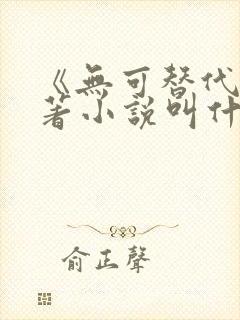 《無可替代
著小說叫什
俞正聲